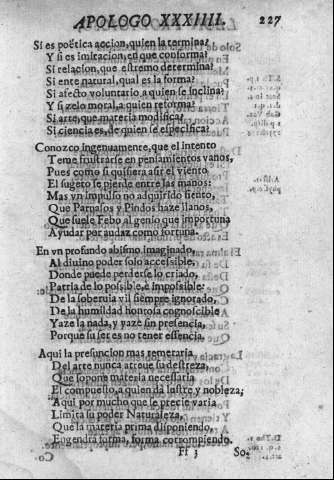 APOLOGO XXXIIII. 227
Si es poëtica accion, quien la termina?
Y si es imitacion, en que conforma?
Si relacion, que estremo determina?
Si ente natural, qual es la forma?
Si afecto voluntario a quien se inclina?
Y si zelo moral, a quien reforma?
Si arte, que materia modifica?
Si ciencia es, de quien se especifica?
Conozco ingenuamente, que el intento
Teme frustrarse en pensamientos vanos,
Pues como si quisiera asir el viento
El sugeto se pierde entre las manos:
Mas vn impulso no adquirido siento,
Que Parnasos y Pindos haze llanos,
Que suele Febo al genio que importuna
Ayudar por audaz como fortuna.
En vn profundo abismo imaginado,
Al diuino poder solo accessible,
Donde puede perderse lo criado,
Patria de lo possible, è impossible:
De la soberuia vil siempre ignorado,
De la humildad honrosa cognoscible
Yaze la nada, y yaze sin presencia,
Porque su ser es no tener essencia.
Aqui la presuncion mas temeraria
Del arte nunca atreue su destreza,
Que supone materia necessaria
El compuesto, a quien dà lustre y nobleza;
Aqui por mucho que le precie varia
Limita su poder Naturaleza,
Que la materia prima disponiendo,
Engendra forma, forma corrompiendo.
Ff 3 So-